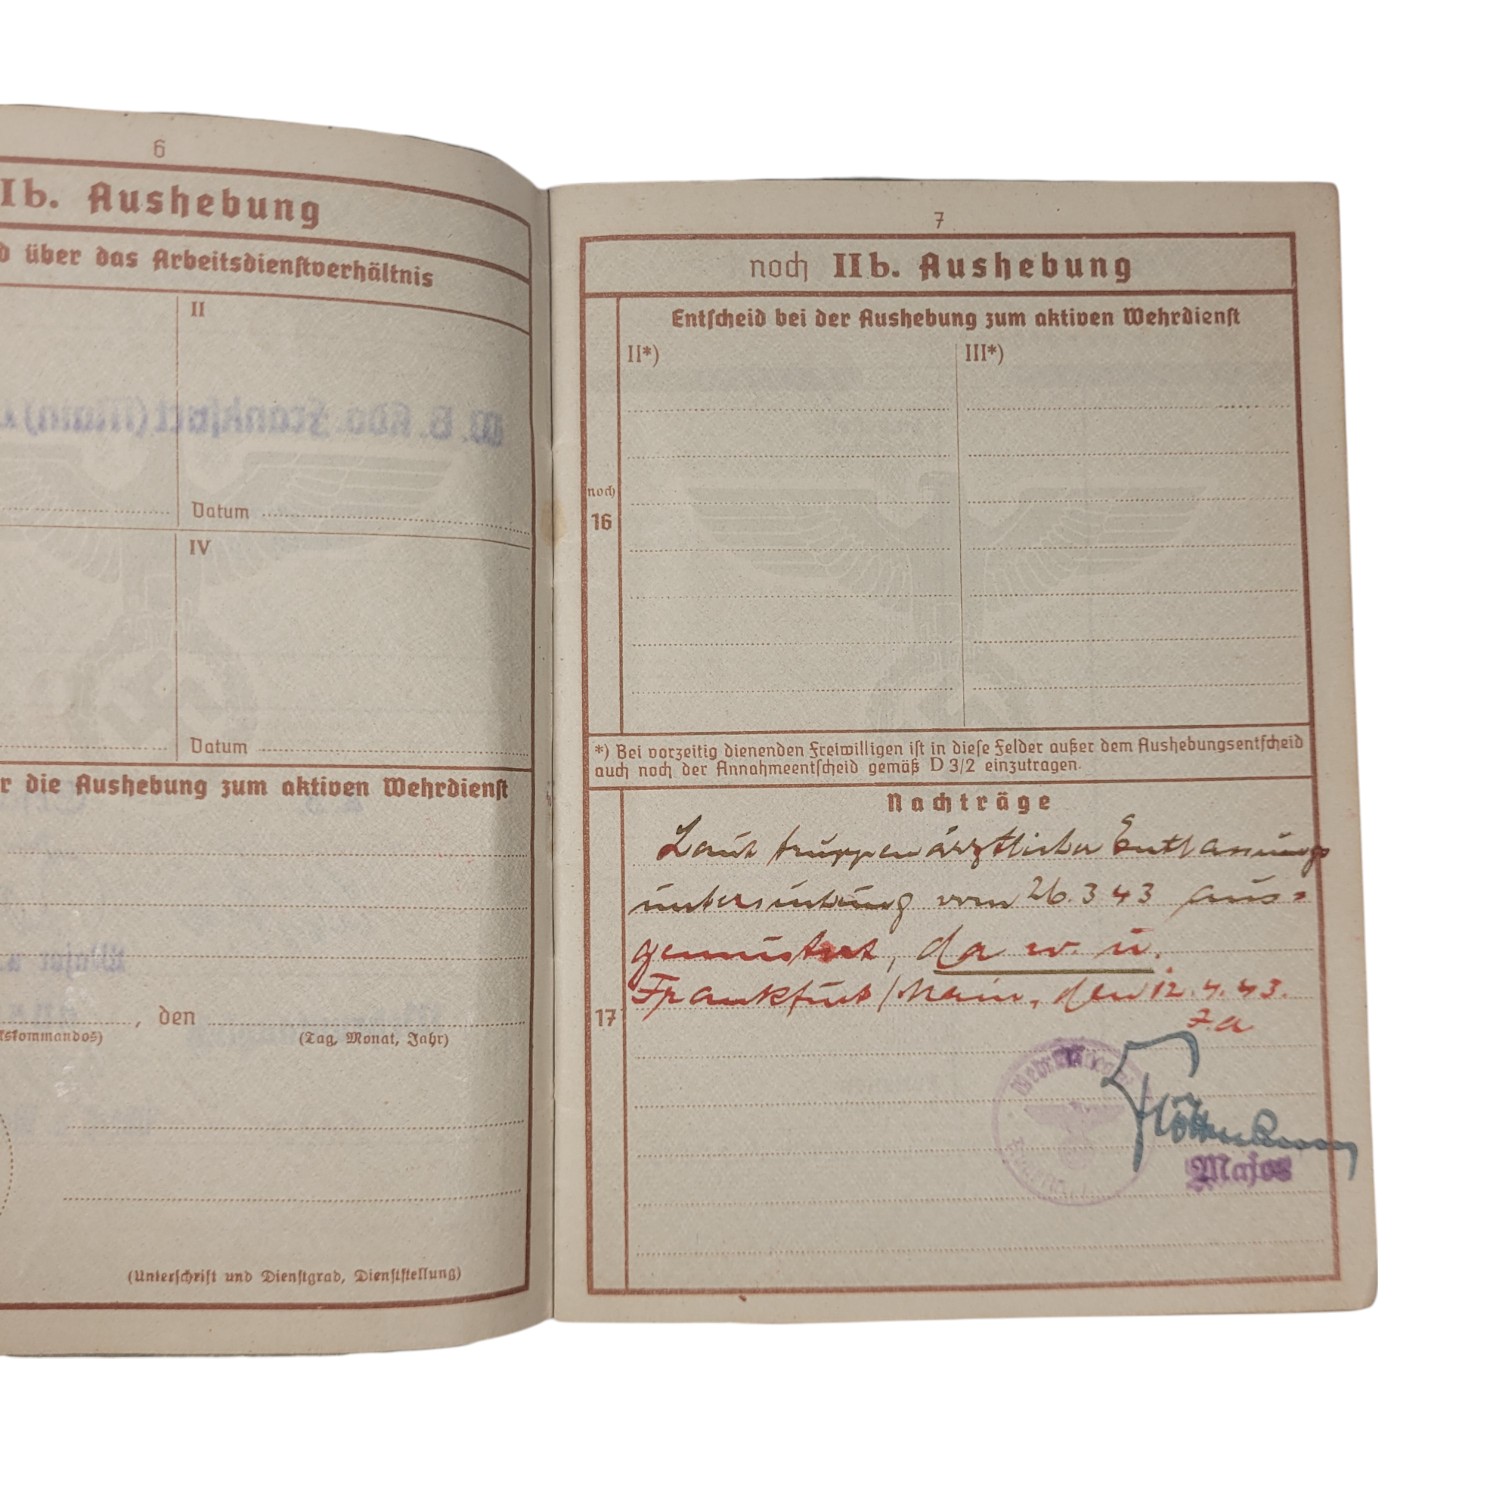 6
Ib. Aushebung
d über das Arbeitsdienstverhältnis
II
W. B. Kdo. Frankfurt (Main)
Datum
IV
Datum
r die Aushebung zum aktiven Wehrdienst
Major a.
, den
(Tag, Monat, Jahr)
skommandos)
(Unterschrift und Dienstgrad, Dienststellung)
7
noch IIb. Aushebung
Entscheid bei der Aushebung zum aktiven Wehrdienst
II*)
III*)
noch
16
*) Bei vorzeitig dienenden Freiwilligen ist in diese Felder außer dem Aushebungsentscheid
auch noch der Annahmeentscheid gemäß D 3/2 einzutragen.
Nachträge
Laut truppenärztlicher Entlassungs
untersuchung vom 26.3.43 aus=
gemustert, da w. u.
Frankfurt/Main, den 12.4.43.
17
J.A
Major